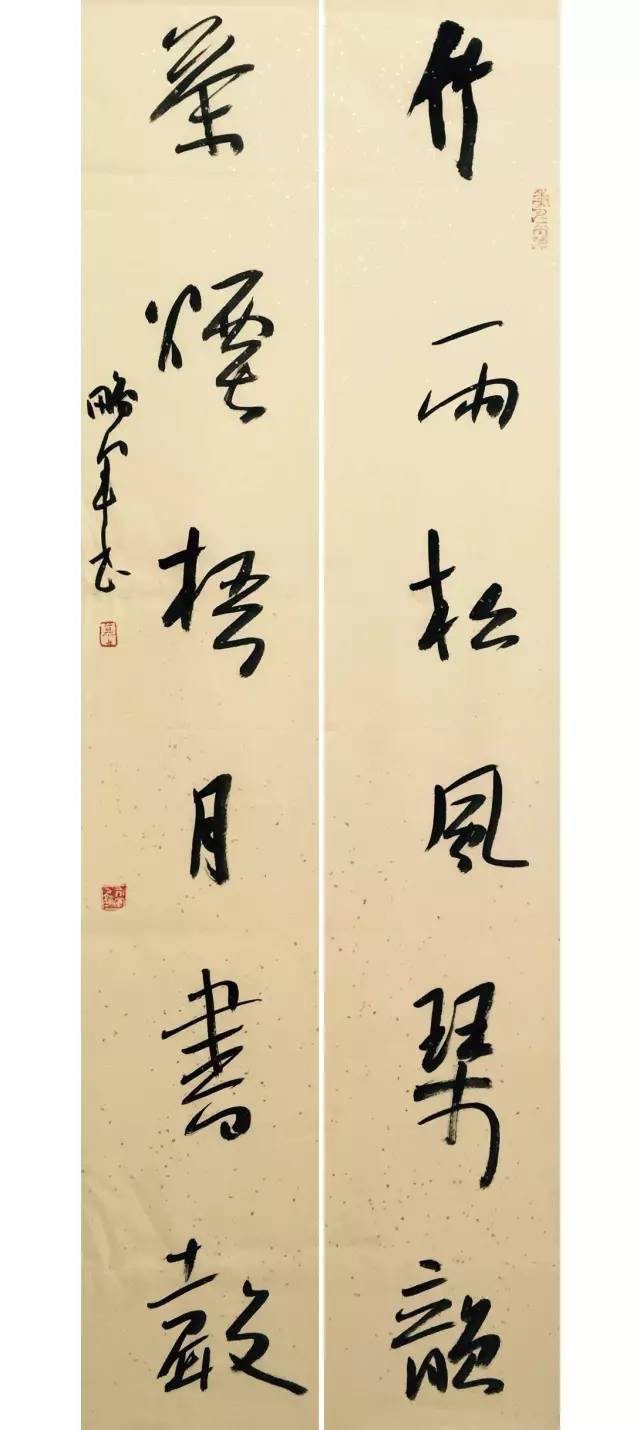 竹雨松風琴韻
茶煙梧月書聲
鵬军书